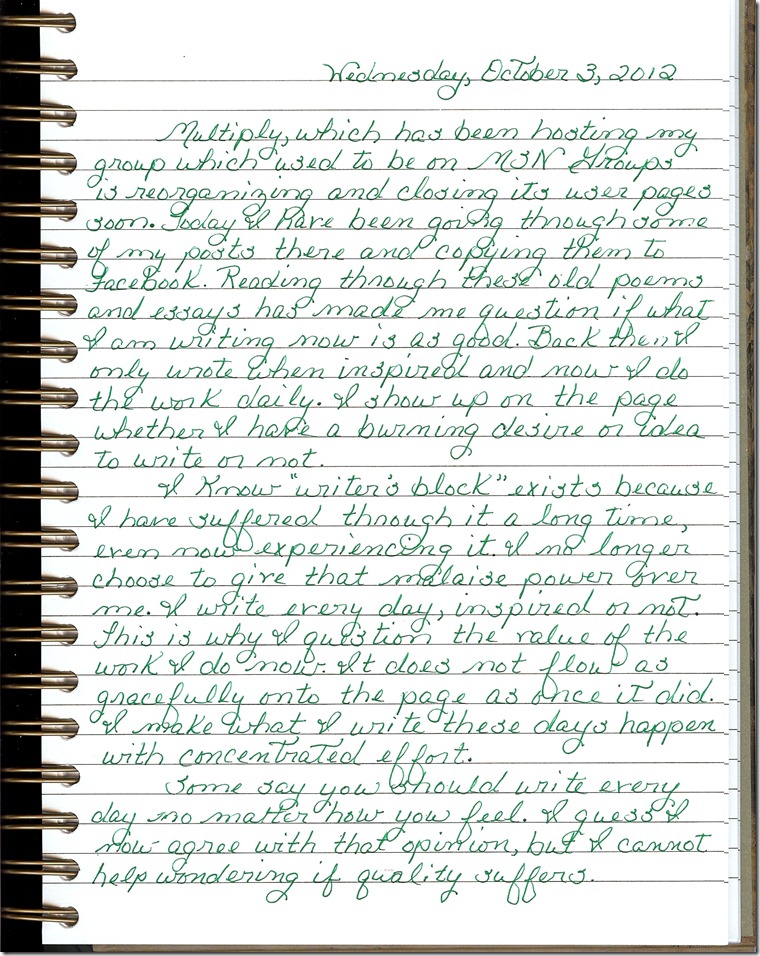 Wednesday, October 3, 2012
Multiply, which has been hosting my
group which used to be on MSN Groups
is reorganizing and closing its user pages
soon. Today I have been going through some
of my posts there and copying them to
Facebook. Reading through these old poems
and essays has made me question if what
I am writing now is as good. Back then I
only wrote when inspired and now I do
the work daily. I show up on the page
whether I have a burning desire or idea
to write or not.
I know "writer's block" exists because
I have suffered through it a long time,
even now experiencing it. I no longer
choose to give that malaise power over
me. I write every day, inspired or not.
This is why I question the value of the
work I do now. It does not flow as
gracefully onto the page as once it did.
I make what I write these days happen
with concentrated effort.
Some say you should write every
day no matter how you feel. I guess I
now agree with that opinion, but I cannot
help wondering if quality suffers.